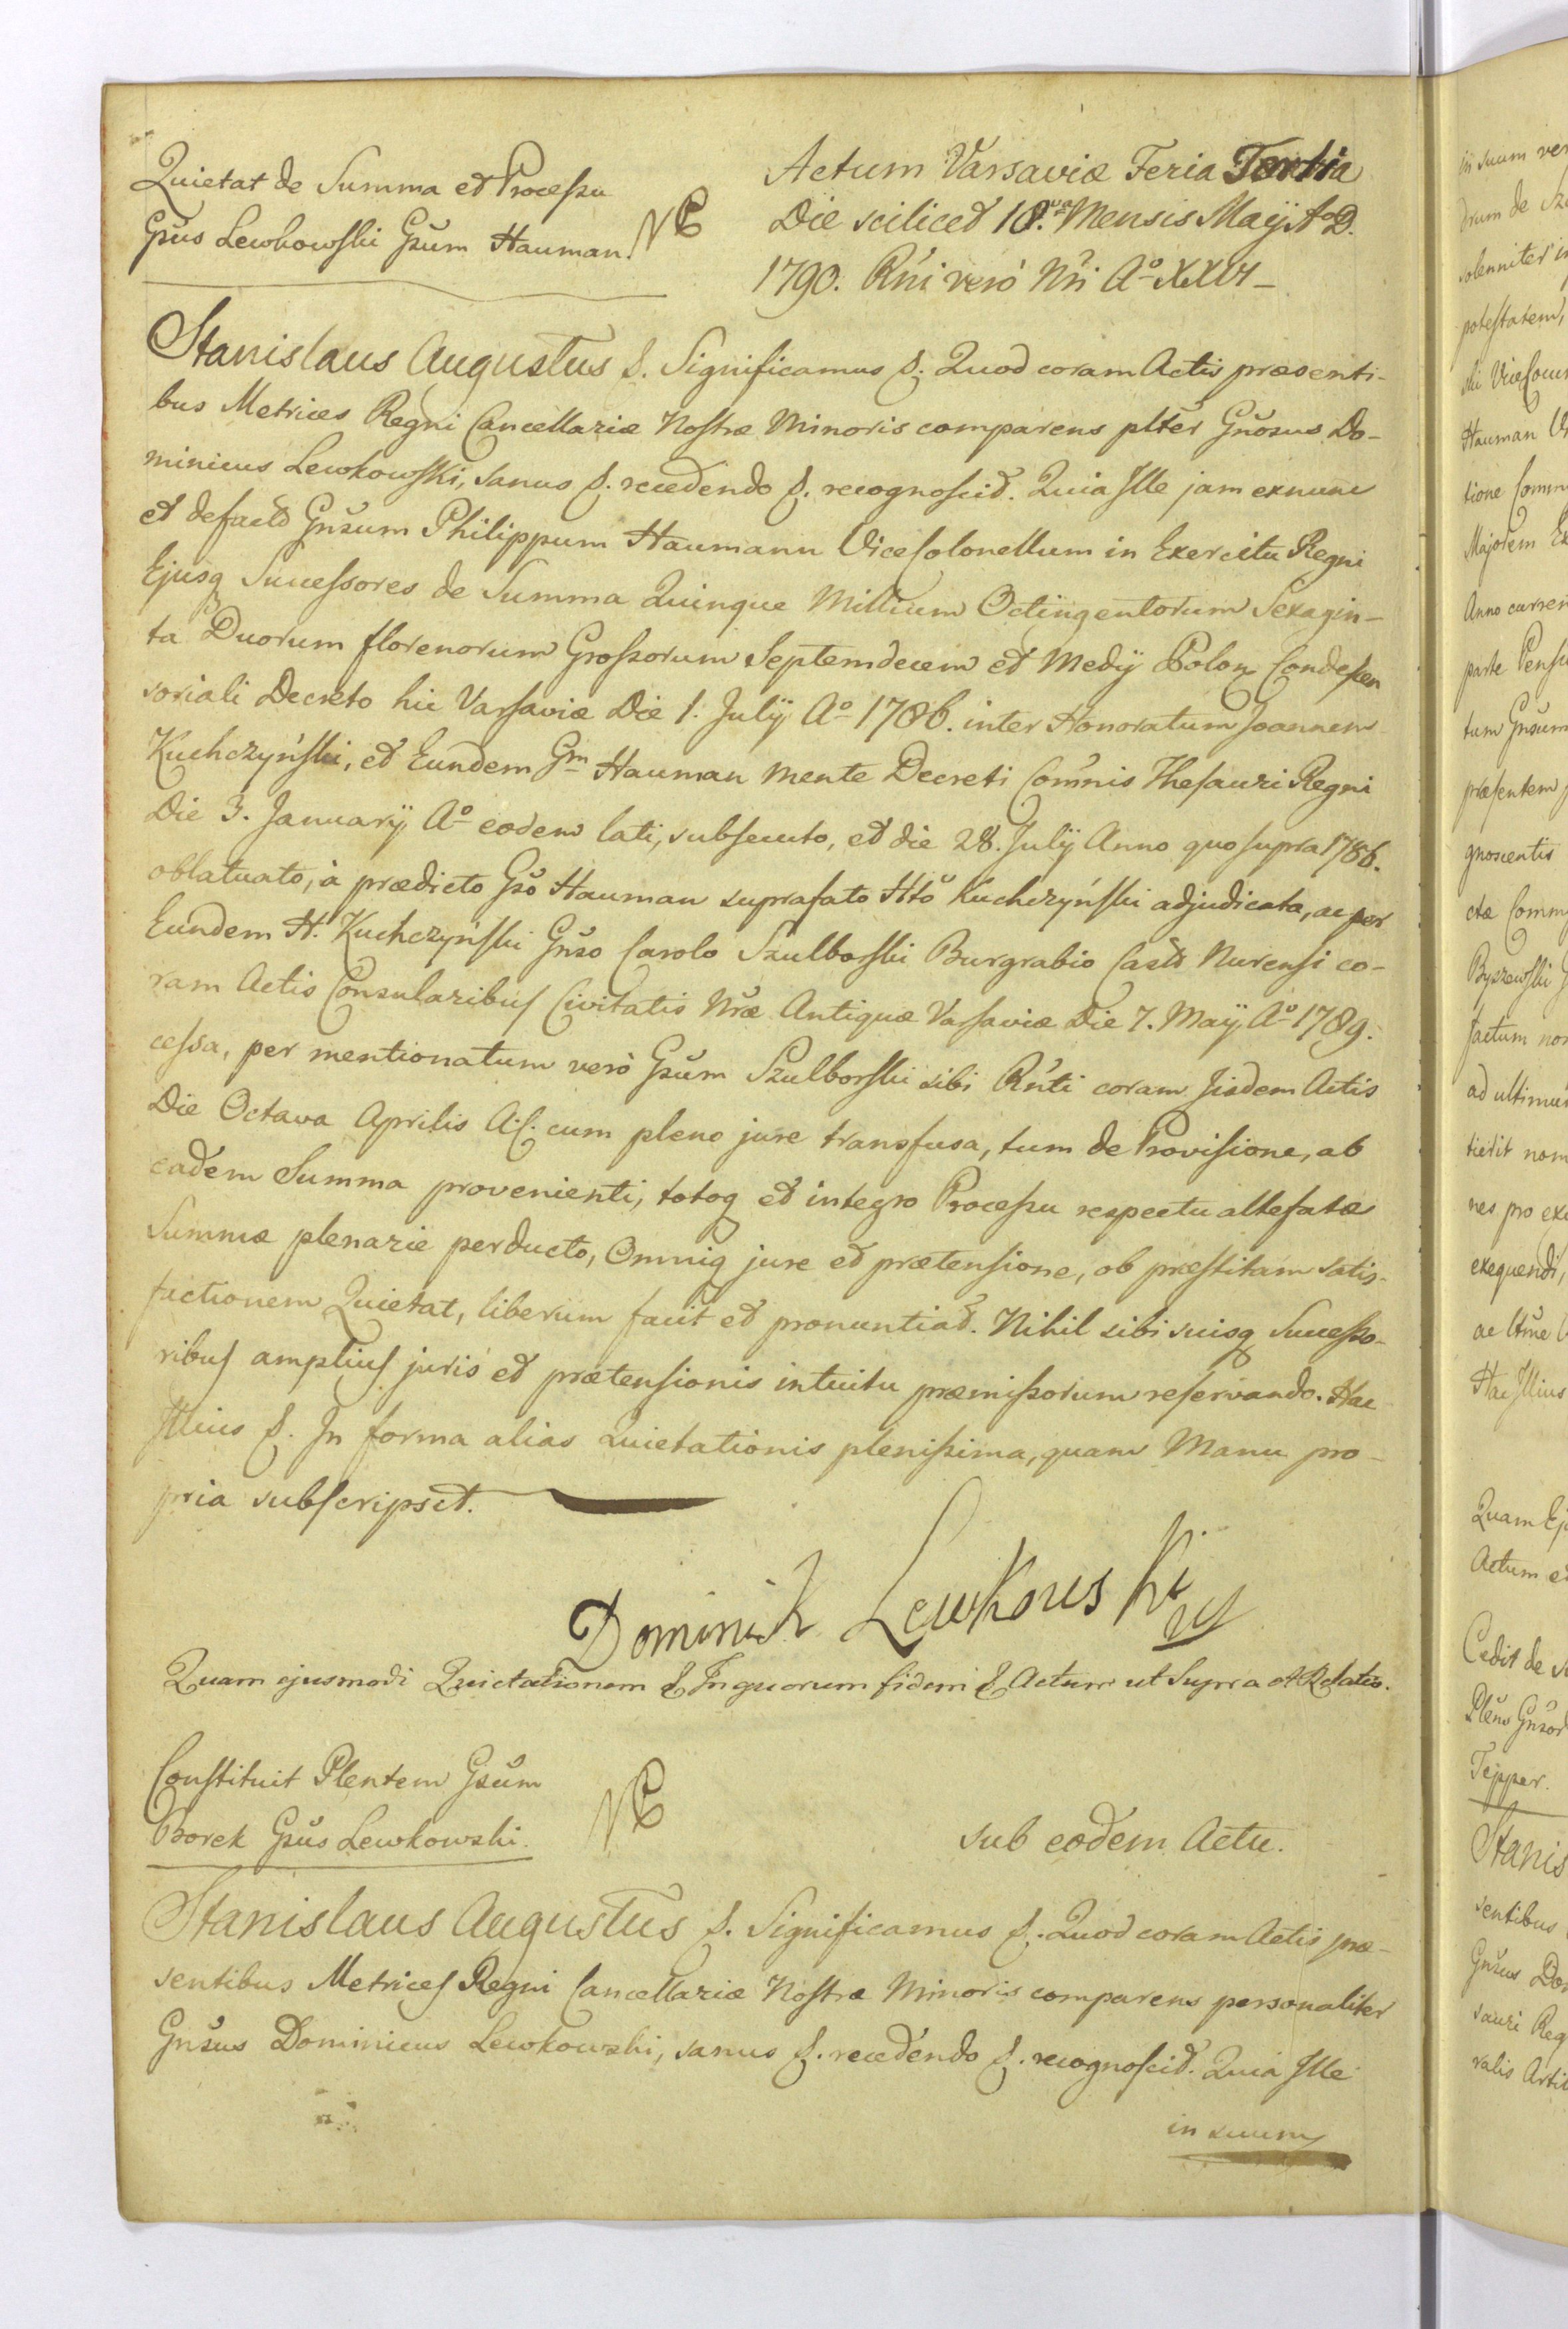 Quietat de Summa et Processu
Gsus Lewkowski Gsum Hauman.
Actum Varsaviæ Feria Tertia
Die scilicet 18.va Mensis Maij Ao D.
1790. Rni verò Nri Ao XXVI
Stanislaus Augustus &. Significamus &. Quod coram Actis præsenti-
bus Metrices Regni Cancellariæ Nostræ Minoris comparens plter Gnosus Do-
minicus Lewkowski, sanus &. recedendo &. recognoscit. Quia Ille jam exnunc
et defacto Gnsum Philippum Haumann Vicecolonellum in Exercitu Regni
Ejusq Successores de Summa Quinque Millium Octingentorum Sexagin-
ta Duorum florenorum Grossorum Septemdecem et Medij Polon Condescen
soriali Decreto hic Varsaviæ Die 1. Julij Ao 1786. inter Honoratum Joannem
Kuchczyński, et Eundem Gm Hauman mente Decreti Comnis Thesauri Regni
Die 3. Januarij Ao eodem lati, subsecuto, et die 28. Julij Anno quo supra 1786.
oblatuato, à prædicto Gso Hauman suprafato Htõ Kuchczyński adjudicata, ac per
Eundem H. Kuchczyński Gnso Carolo Szulborski Burgrabio Castr Nurensi co-
ram Actis Consularibus Civitatis Nræ Antiquæ Varsaviæ Die 7. Maij Ao 1789.
cessa, per mentionatum verò Gsum Szulborski sibi Rnti coram Iisdem Actis
Die Octava Aprilis A. C. cum pleno jure transfusa, tum de Provisione, ab
eadem Summa provenienti, totoq et integro Processu respectu altefatæ
Summæ plenarie perducto, Omniq jure et prætensione, ob præstitam satis-
factionem Quietat, liberum facit et pronuntiat. Nihil sibi suisq Successo-
ribus amplius juris et prætensionis intuitu præmissorum reservando. Hac
Illius &. In forma alias Quietationis plenissima, quam Manu pro-
pria subscripsit.
Dominik Lewkowski
Quam ejusmodi Quietationem & Inquorum fidem & Actum ut Supra et Relatio.
Constituit Plentem Gsum
Borek Gsus Lewkowski.
Sub eodem Actu.
Stanislaus Augustus &. Significamus &. Quod coram Actis præ-
sentibus Metrices Regni Cancellariæ Nostræ Minoris comparens personaliter
Gnsus Dominicus Lewkowski, sanus &. recedendo &. recognoscit. Quia Ille
in suum